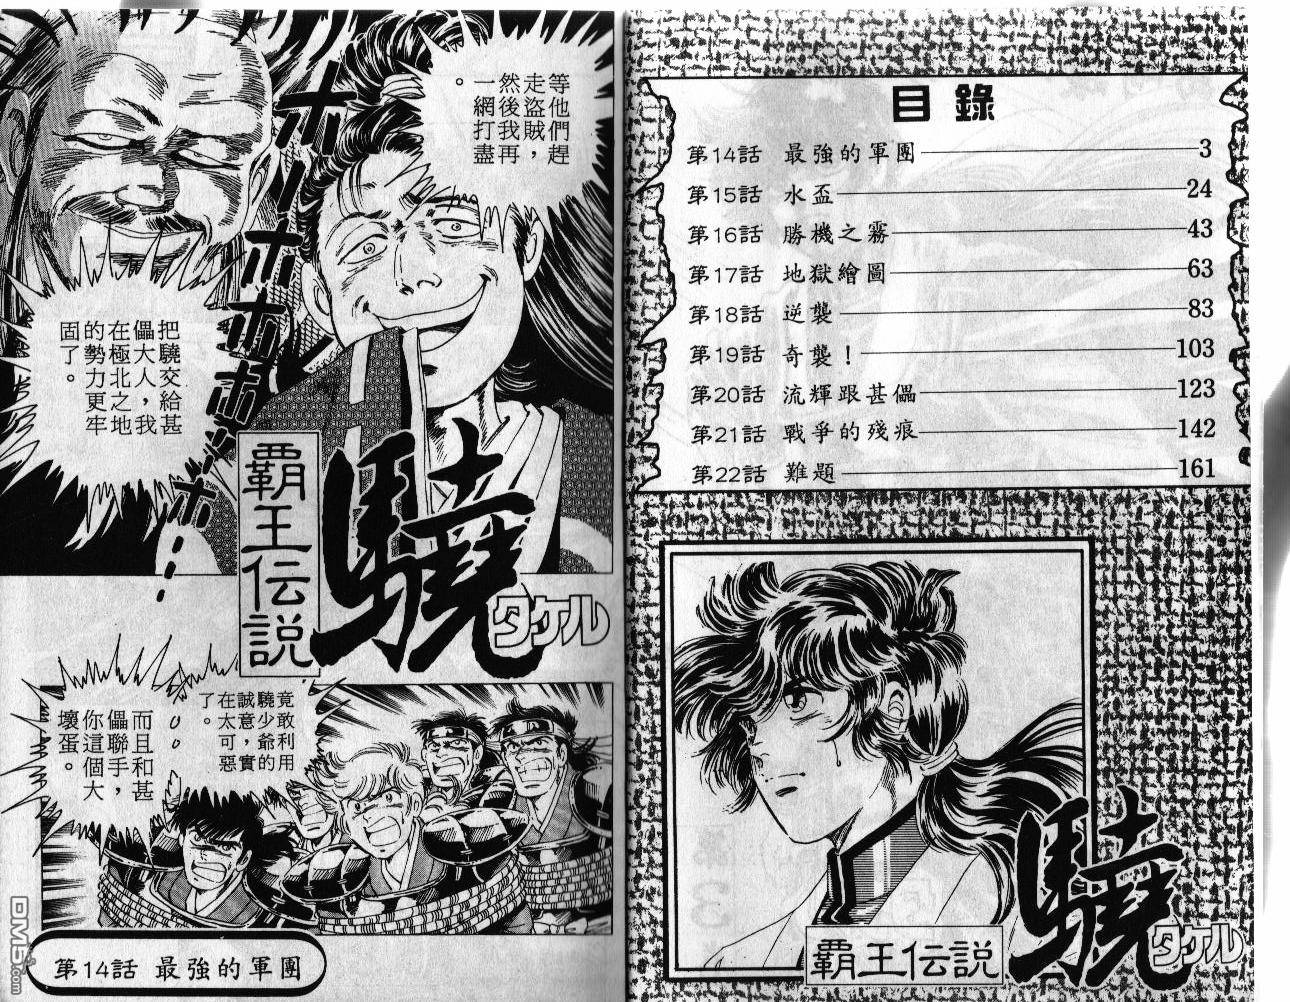 目錄
第14話 最強的軍團 3
第15話 水盃 24
第16話 勝機之霧 43
第17話 地獄繪圖 63
第18話 逆襲 83
第19話 奇襲！ 103
第20話 流輝跟甚儡 123
第21話 戰爭的殘痕 142
第22話 難題 161
驍
タケル
覇王伝説
等他們趕
走盜賊，
然後我再
一網打盡
。
ホホホホホホ…ホ…
把驍交給甚
儡大人，我
在極北之地
的勢力更牢
固了。
覇王伝説
驍
タケル
竟敢利用
驍少爺的
誠意，實
在太可惡
了。
而且和甚
儡聯手，
你這個大
壞蛋。
第14話 最強的軍團
DM5.com